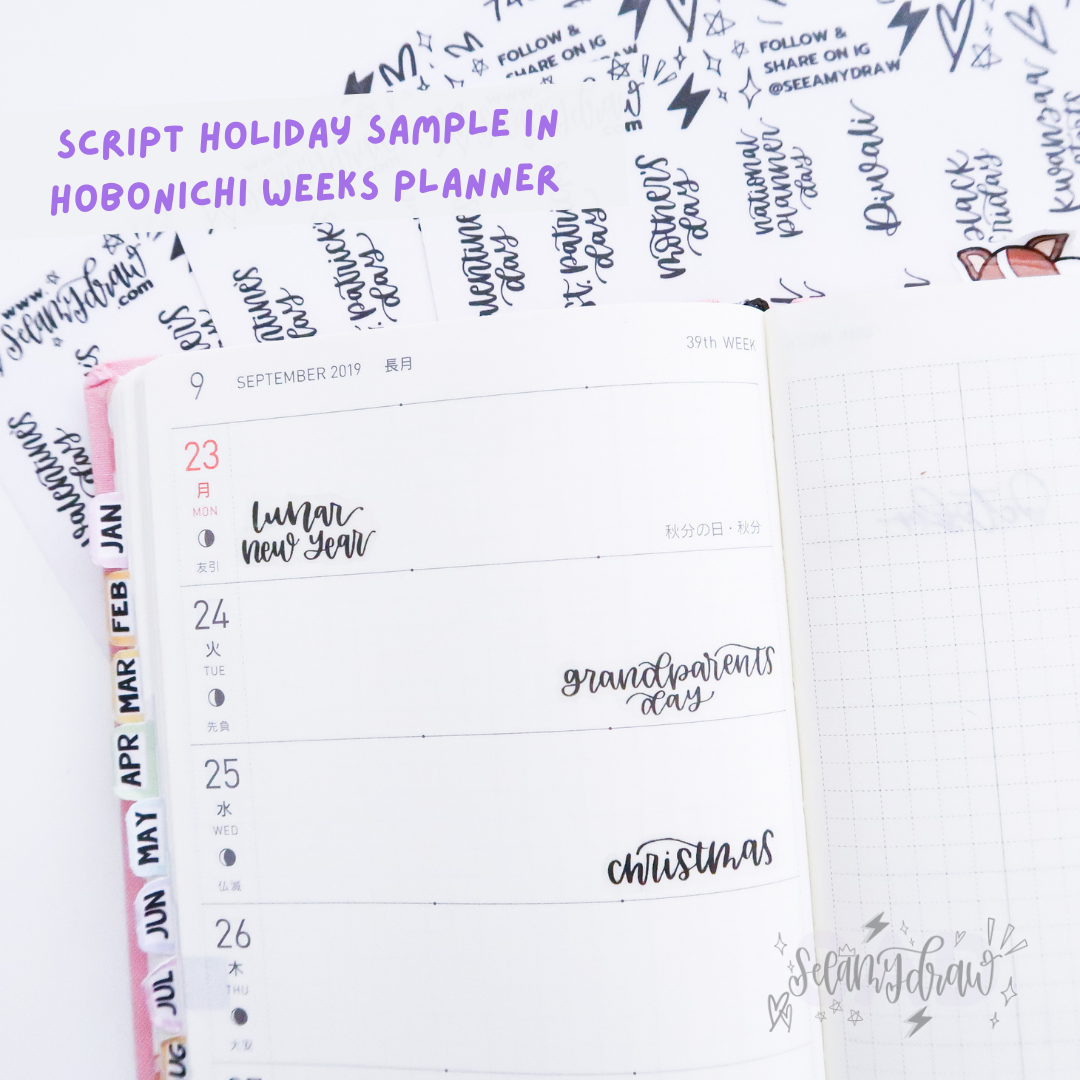 FOLLOW &
SHARE ON IG
FOLLOW &
SHARE ON IG
@SEEAMYDRAW
SCRIPT HOLIDAY SAMPLE IN
HOBONICHI WEEKS PLANNER
www.
Seeamydraw
.com
patrick
day
day
st. patri
day
mother's
day
national
planner
day
Diwali
valentines
day
9 SEPTEMBER 2019 長月 39th WEEK
23
月
MON
友引
lunar
new year
秋分の日・秋分
24
火
TUE
先負
grandparents
day
25
水
WED
仏滅
christmas
26
木
THU
大安
JAN
FEB
MAR
APR
MAY
JUN
JUL
UG
Seeamydraw